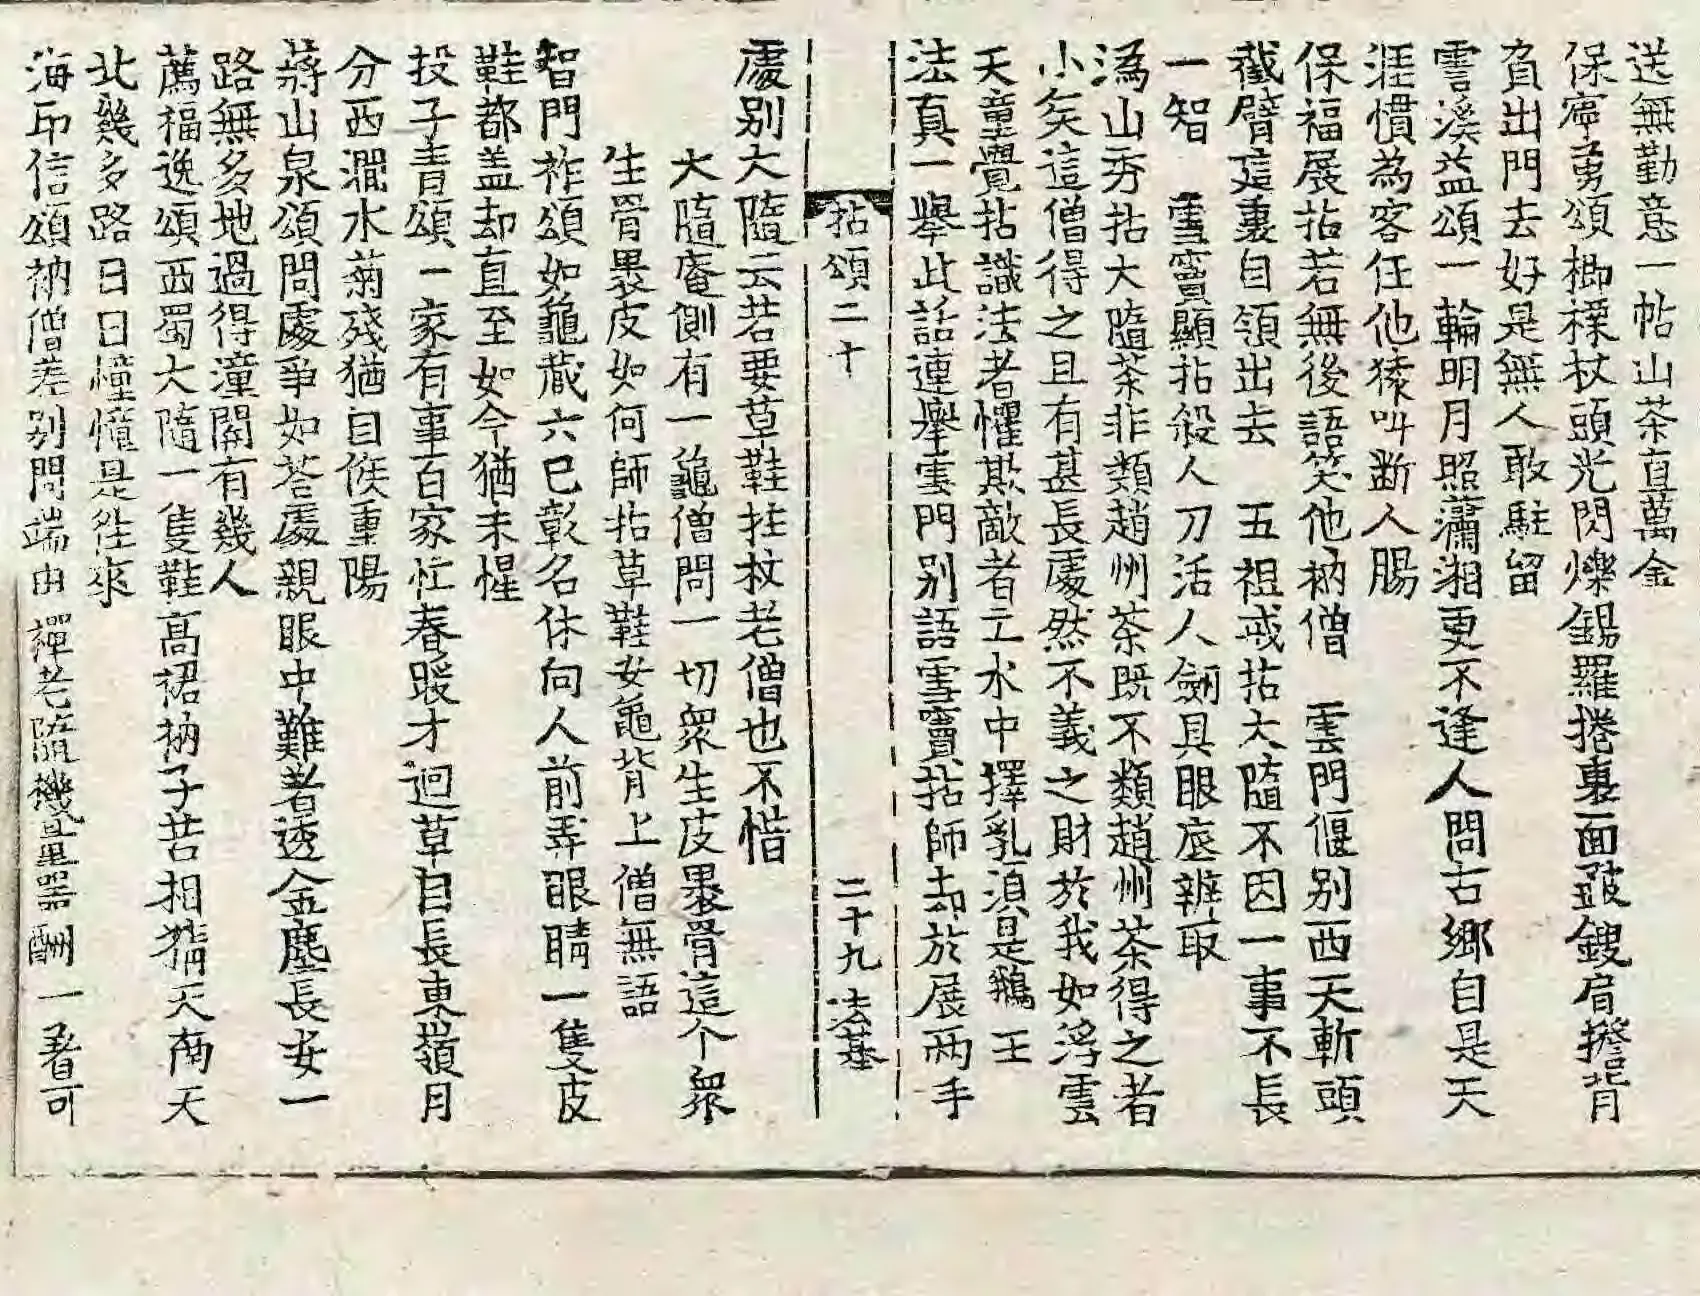 送無勤意一帖山茶直萬金
保寧勇頌楖𣗖杖頭光閃爍錫羅捲裏面皷鍐肩擔背
負出門去好是無人敢駐留
雲溪益頌一輪明月照瀟湘更不逢人問古鄉自是天
涯慣為客任他猿叫断人腸
保福展拈若無後語笑他衲僧　雲門偃别西天斬頭
截臂這裏自領出去　五祖戒拈大隨不因一事不長
一智　雪竇顯拈殺人刀活人劒具眼底辨取
潙山秀拈大隨茶非類趙州茶既不類趙州茶得之者
小矣這僧得之且有甚長處然不義之財於我如浮雲
天童覺拈識法者懼欺敵者亡水中擇乳須是鵝王
法真一擧此話連擧雲門别語雪竇拈師却於展两手
拈頌二十　二十九　法基
處别大隨云若要草鞋拄杖老僧也不惜
大隨庵側有一龜僧問一切衆生皮裹骨這个衆
生骨裹皮如何師拈草鞋安龜背上僧無語
智門祚頌如龜藏六已彰名休向人前弄眼睛一隻皮
鞋都盖却直至如今猶未惺
投子青頌一家有事百家忙春暖才迴草自長東嶺月
分西澗水菊殘猶自候重陽
蔣山泉頌問處爭如荅處親眼中難著透金塵長安一
路無多地過得潼關有幾人
薦福逸頌西蜀大隨一隻鞋高裙衲子苦相猜天南天
北幾多路日日憧憧是往來
海印信頌衲僧差别問端由禪老隨機豈單酬一著可